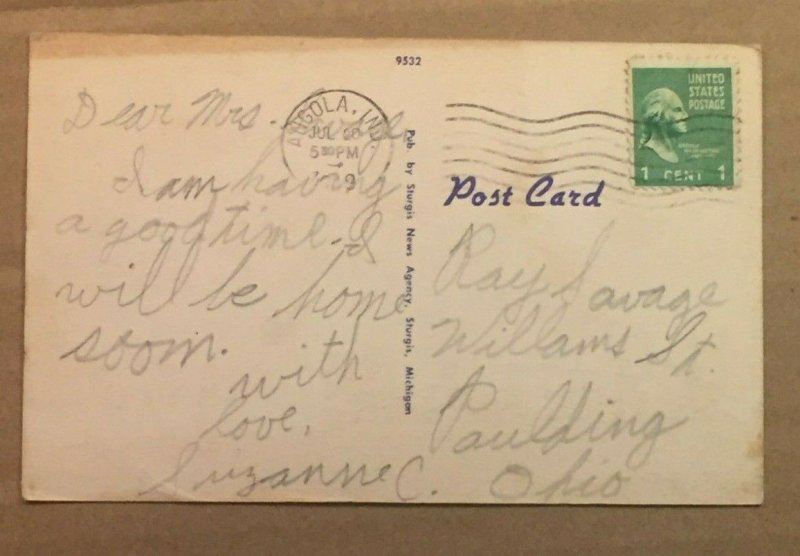 9532
Dear Mrs.
I am having
a good time. I
will be home
soom.
with
love,
Suzanne C.
ANGOLA, IND.
JUL
5 30 PM
Pub. by Sturgis News Agency, Sturgis, Michigan
UNITED
STATES
POSTAGE
1 CENT 1
Post Card
Ray Savage
Willams St.
Paulding
Ohio